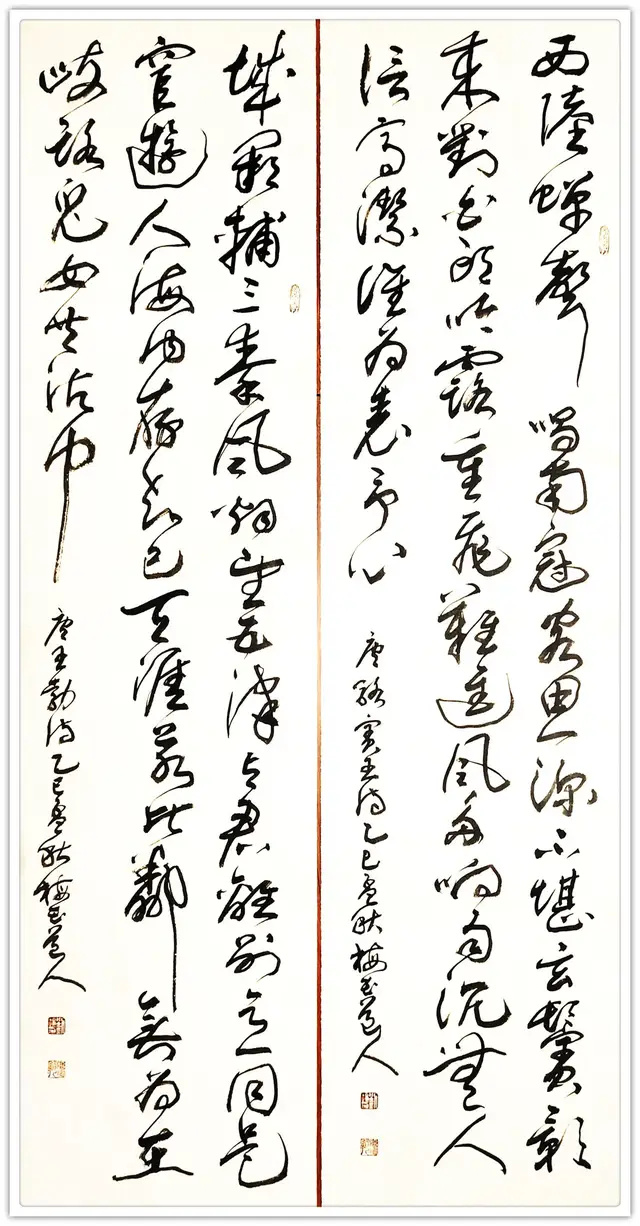 西陸蟬聲唱南冠客思深不堪玄鬢影
來對白頭吟露重飛難進風多響易沉無人
信高潔誰為表予心
唐駱賓王詩乙巳孟秋梅道人
城闕輔三秦風烟望五津與君離別意同是
宦遊人海內存知己天涯若比鄰無為在
歧路兒女共沾巾
唐王勃詩乙巳孟秋梅道人